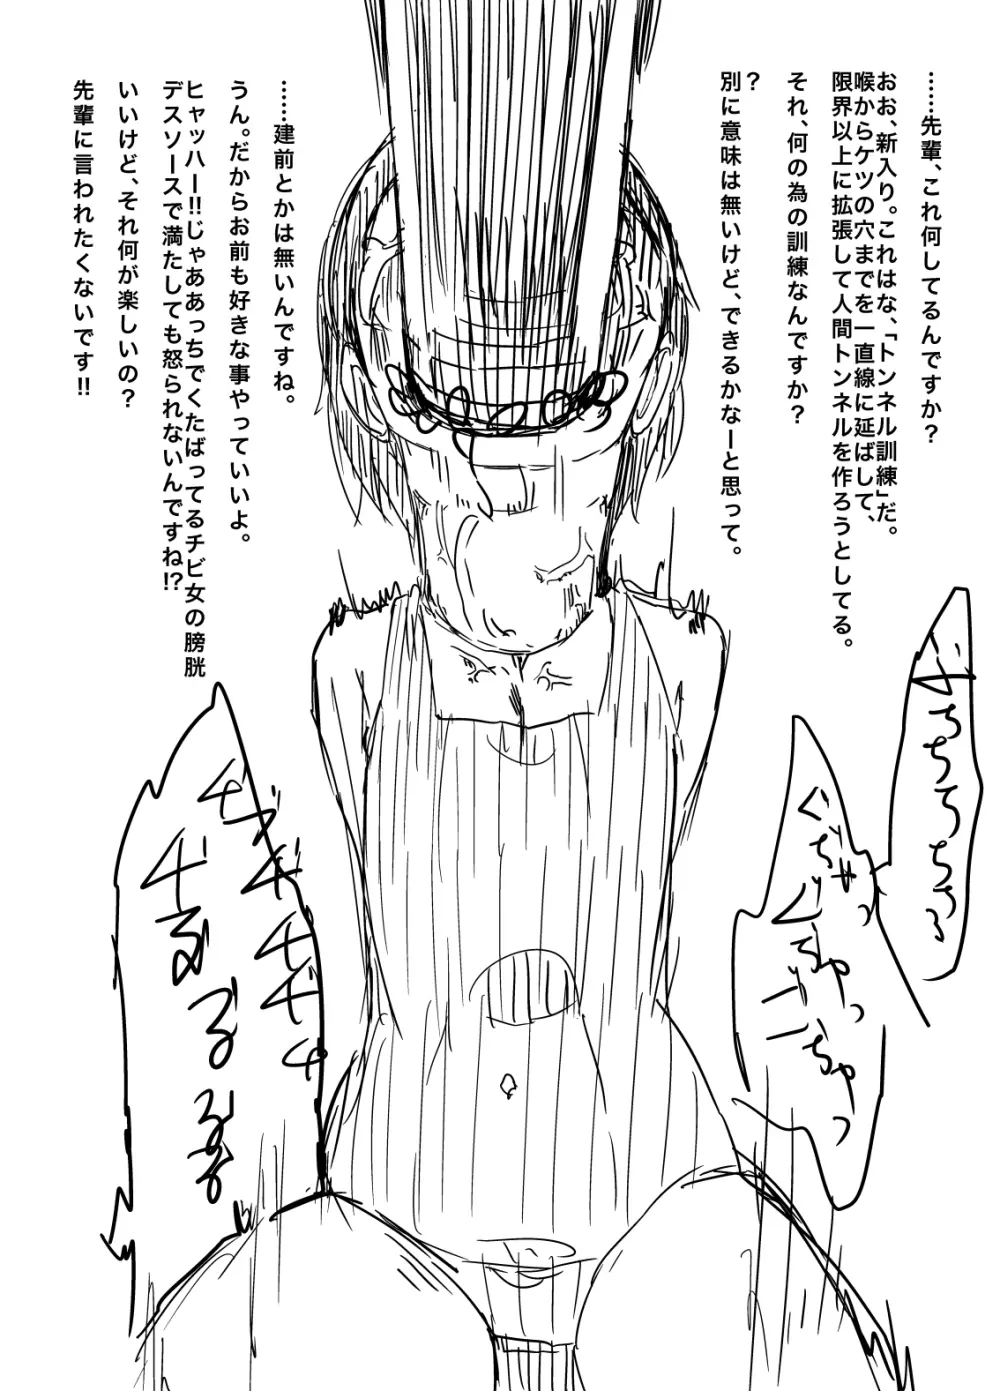 ……先輩、これ何してるんですか?
おお、新入り。これはな、「トンネル訓練」だ。
喉からケツの穴までを一直線に延ばして、
限界以上に拡張して人間トンネルを作ろうとしてる。
それ、何の為の訓練なんですか?
?
別に意味は無いけど、できるかなーと思って。
……建前とかは無いんですね。
うん。だからお前も好きな事やっていいよ。
ヒャッハー!!じゃああっちでくたばってるチビ女の膀胱
デスソースで満たしても怒られないんですね!?
いいけど、それ何が楽しいの?
先輩に言われたくないです!!